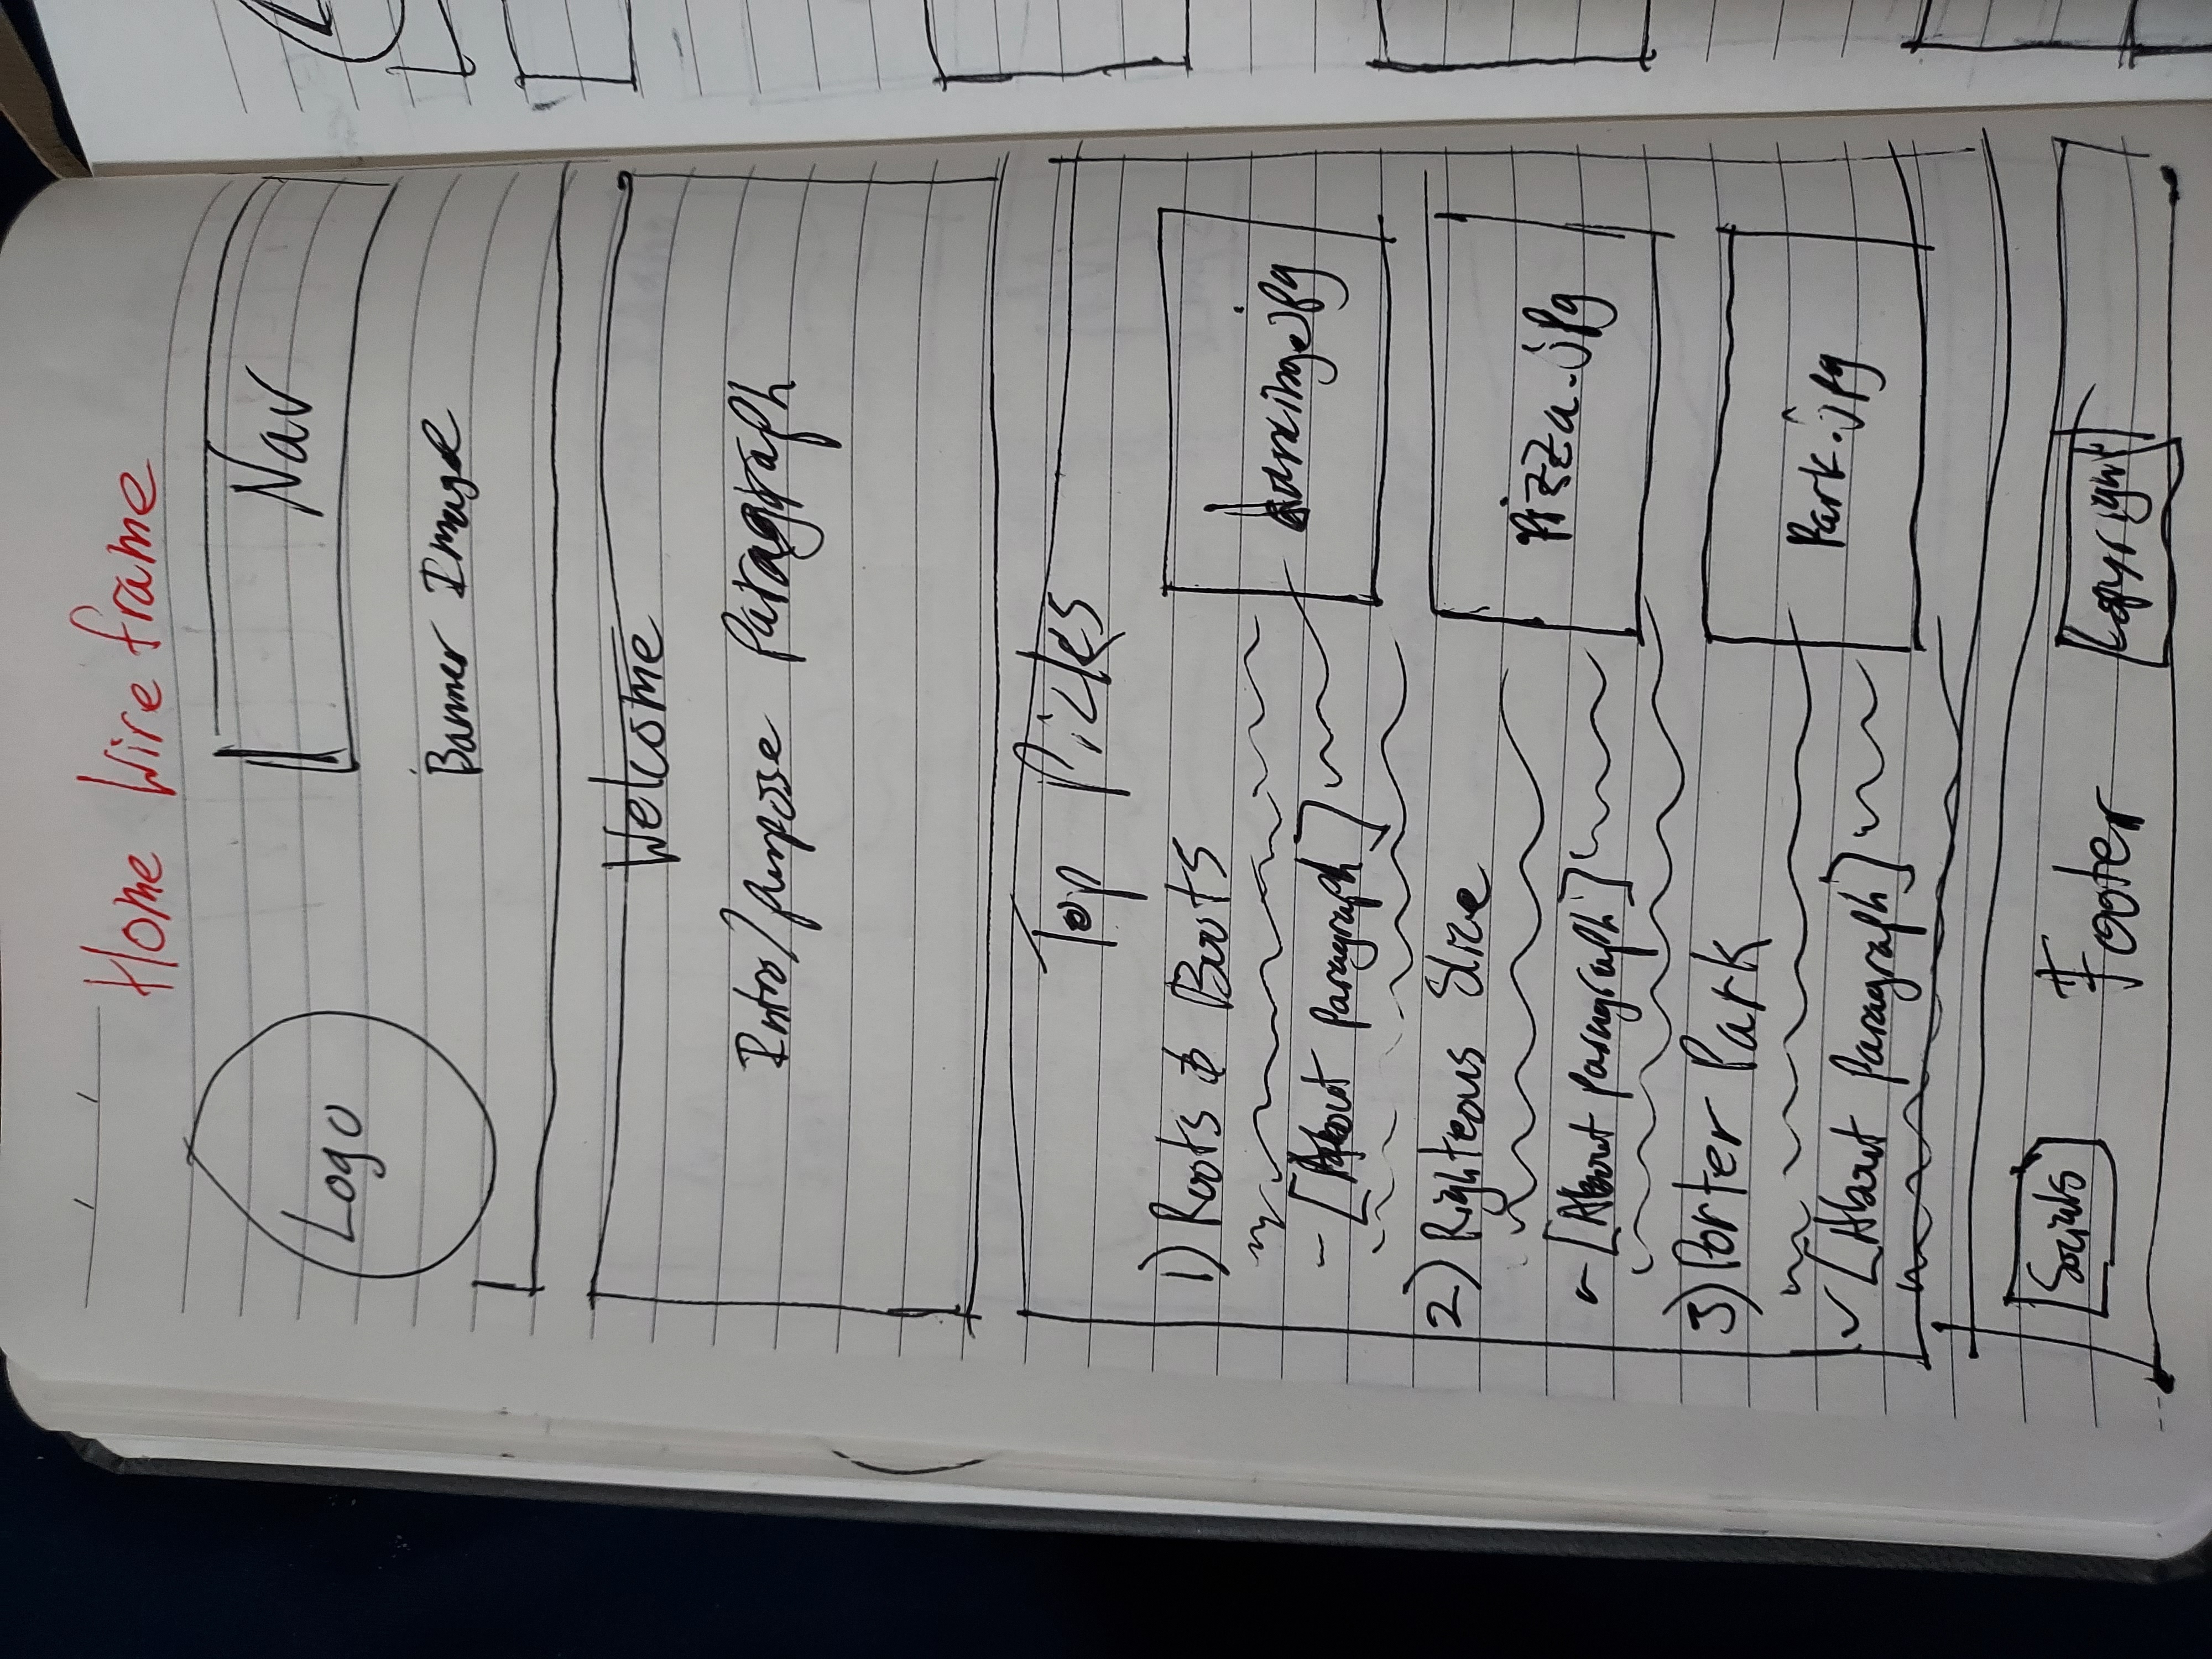 Home Wireframe
Logo
Nav
Banner Image
Welcome
Intro/purpose Paragraph
Top Picks
1) Roots & Boots
- [About paragraph]
dancing.jpg
2) Righteous Slice
- [About paragraph]
Pizza.jpg
3) Porter Park
[About paragraph]
Park.jpg
Socials
Footer
Copyright